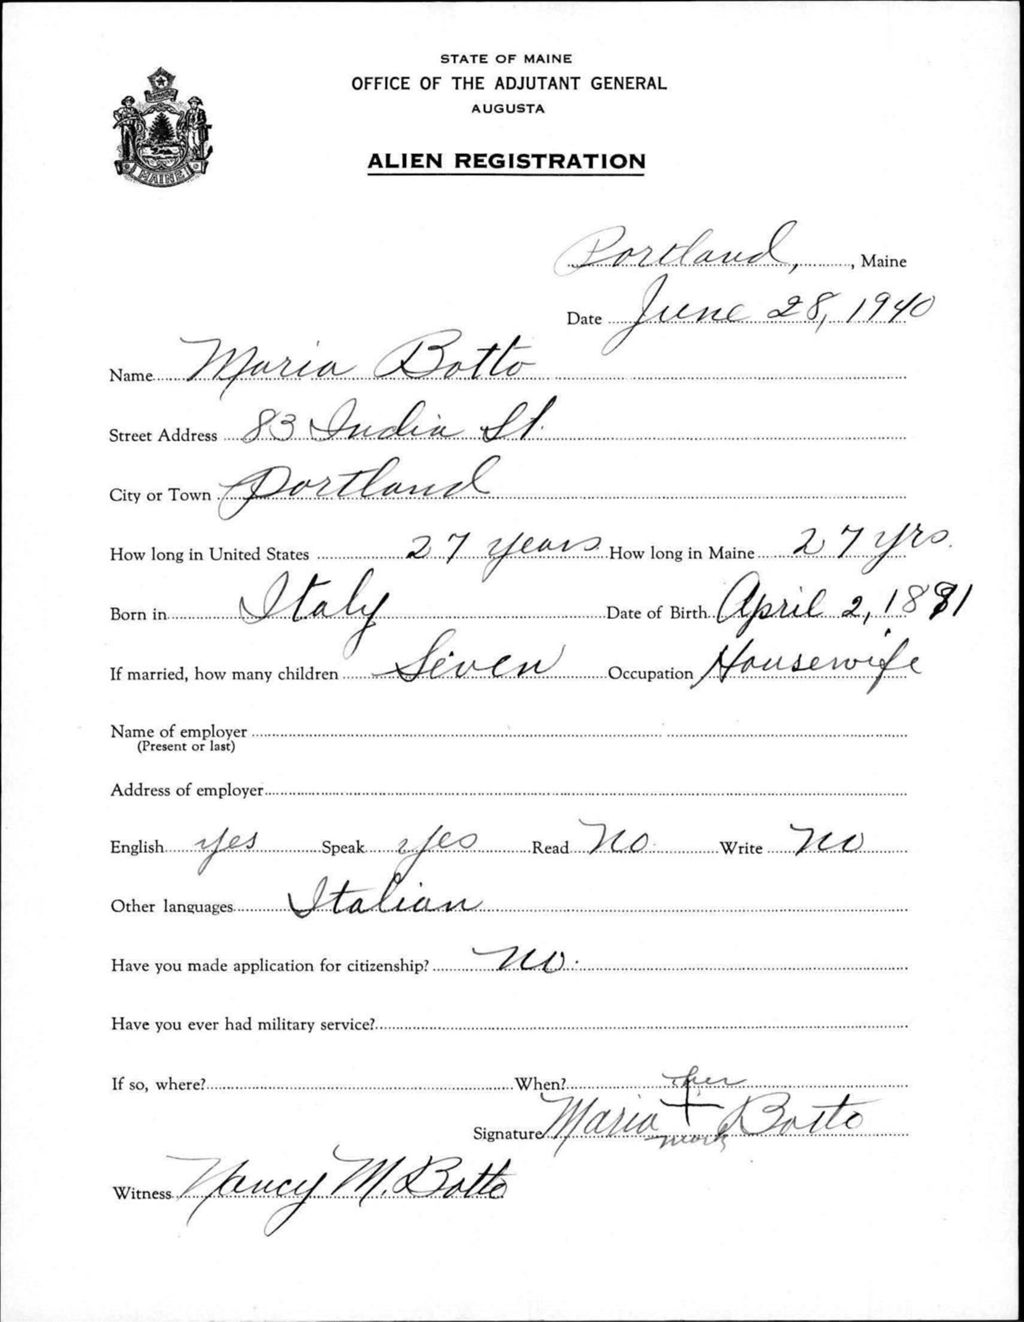 STATE OF MAINE
OFFICE OF THE ADJUTANT GENERAL
AUGUSTA
ALIEN REGISTRATION
MAINE
Portland, , Maine
Date June 28, 1940
Name Maria Botto
Street Address 83 India St.
City or Town Portland
How long in United States 27 years How long in Maine 27 yrs.
Born in Italy Date of Birth April 2, 1881
If married, how many children Seven Occupation Housewife
Name of employer
(Present or last)
Address of employer
English yes Speak yes Read No Write No
Other languages Italian
Have you made application for citizenship? No.
Have you ever had military service?
If so, where? When?
her
Signature Maria + Botto
mark
Witness Nancy M. Botto